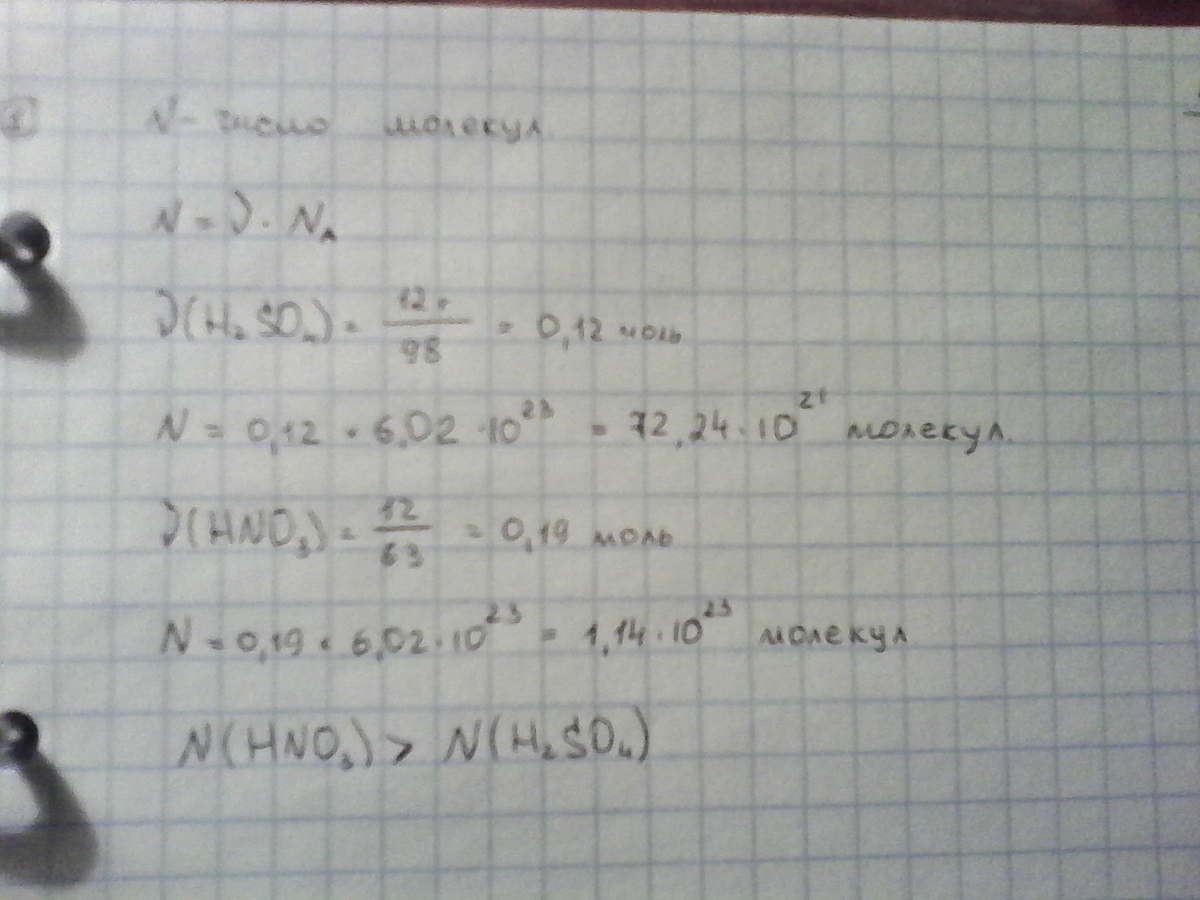 N - число молекул
N = ν · Nₐ
ν(H₂SO₄) = 12г/98 = 0,12 моль
N = 0,12 · 6,02 · 10²³ = 72,24 · 10²¹ молекул.
ν(HNO₃) = 12/63 = 0,19 моль
N = 0,19 · 6,02 · 10²³ = 1,14 · 10²³ молекул
N(HNO₃) > N(H₂SO₄)